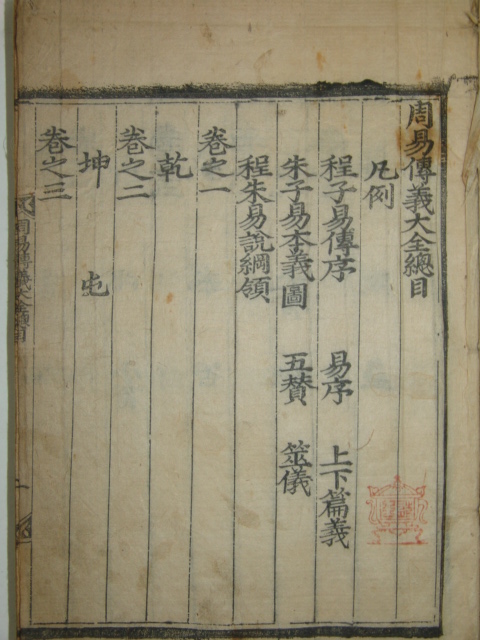 周易傳義大全總目
凡例
程子易傳序 易序 上下篇義
朱子易本義圖 五賛 筮儀
程朱易說綱領
卷之一
乾
卷之二
坤 屯
卷之三
周易傳義大全總目